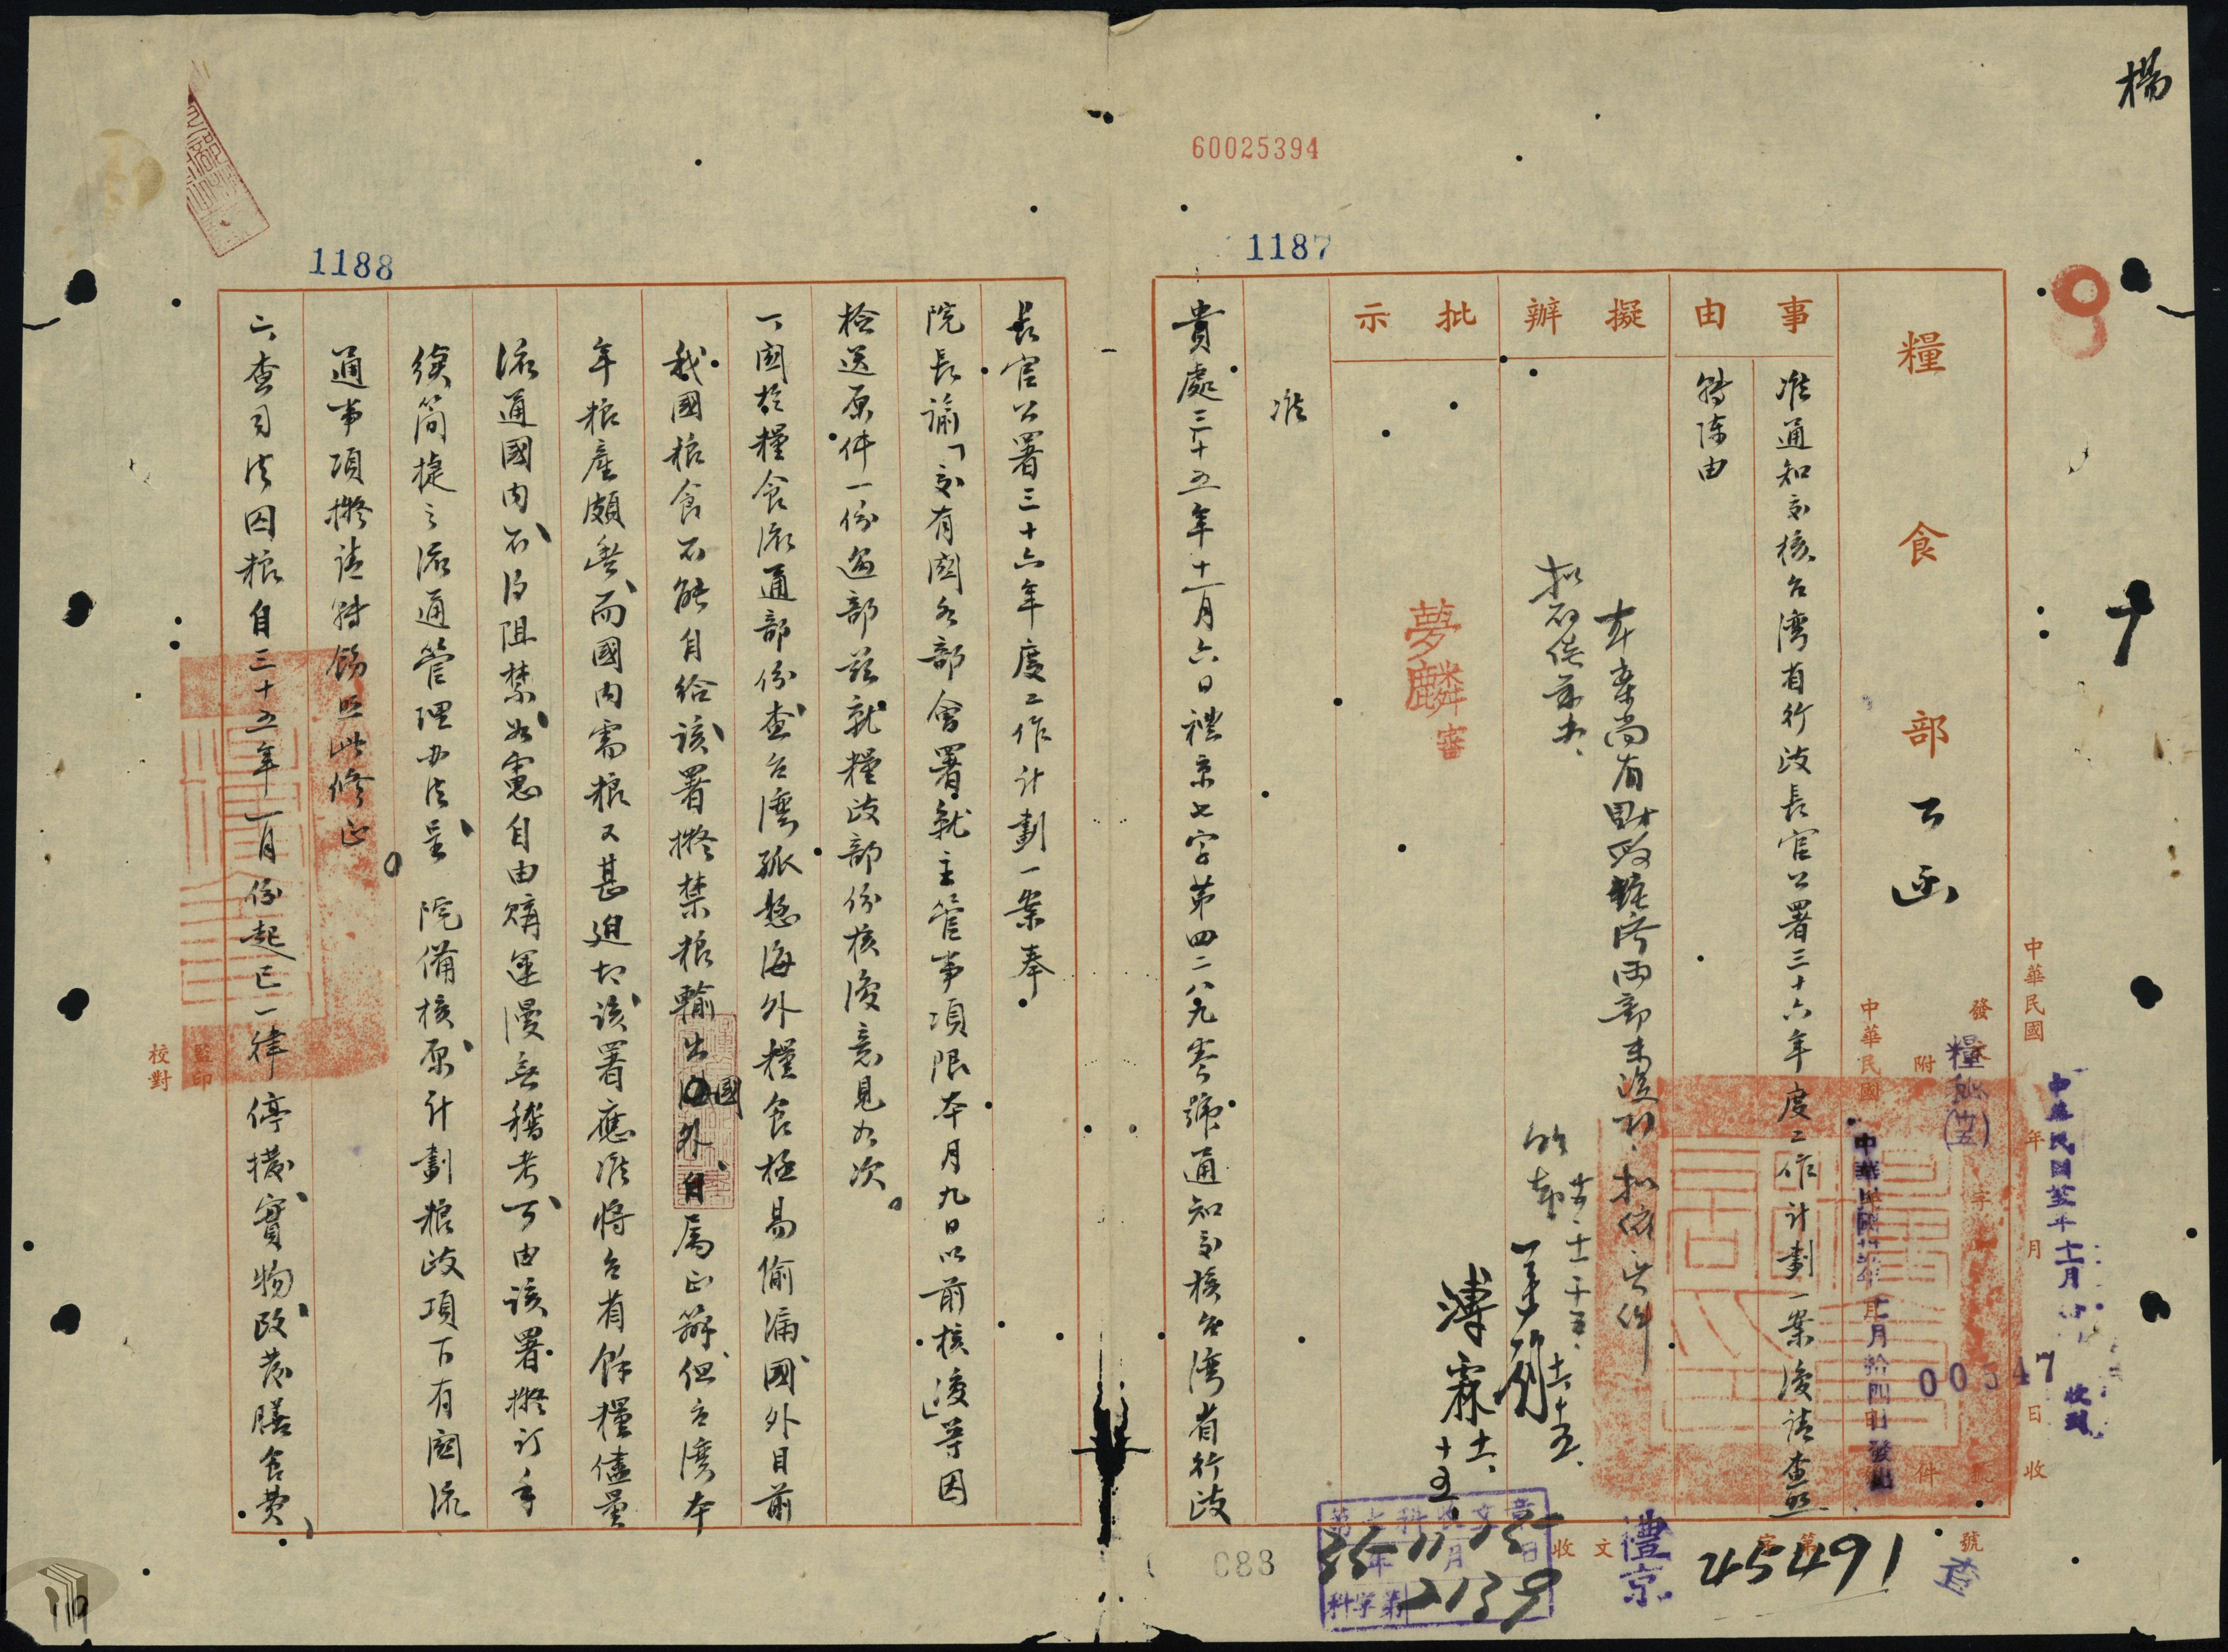 楊
60025394
1187
糧食部公函
中華民國 年 月 日收
發 字 號
附 件
糧
00547
收到
中華民國
拾四日發出
事由
准通知交核台灣省行政長官公署三十六年度工作計劃一案復請查照
轉陳由
擬辦
本案尚有財政經濟兩部未復到擬俟
批示
夢麟
審
溥霖
准
貴處三十五年十一月六日禮京七字第四二八九零號通知交核台灣省行政
收文 字第 號
禮京
45491
第七科收文章
35年11月15日
科字第2139
088
1188
長官公署三十六年度工作計劃一案奉
院長諭「交有關各部會署就主管事項限本月九日以前核復」等因
檢送原件一份過部茲就糧政部份核復意見如次。
一、關於糧食流通部份查台灣孤懸海外糧食極易偷漏國外目前
我國粮食不能自給該署擬禁粮輸出國外、自屬正辦但台灣本
年粮產頗豐、而國內需粮又甚迫切該署應准將台省餘糧儘量
流通國內不得阻禁如慮自由購運漫無稽考可由該署擬訂手
續簡捷之流通管理办法呈 院備核原計劃粮政項下有關流
通事項擬請轉飭照此修正。
二、查司法囚粮自三十五年一月份起已一律停撥實物改發膳食費、
監印
校對